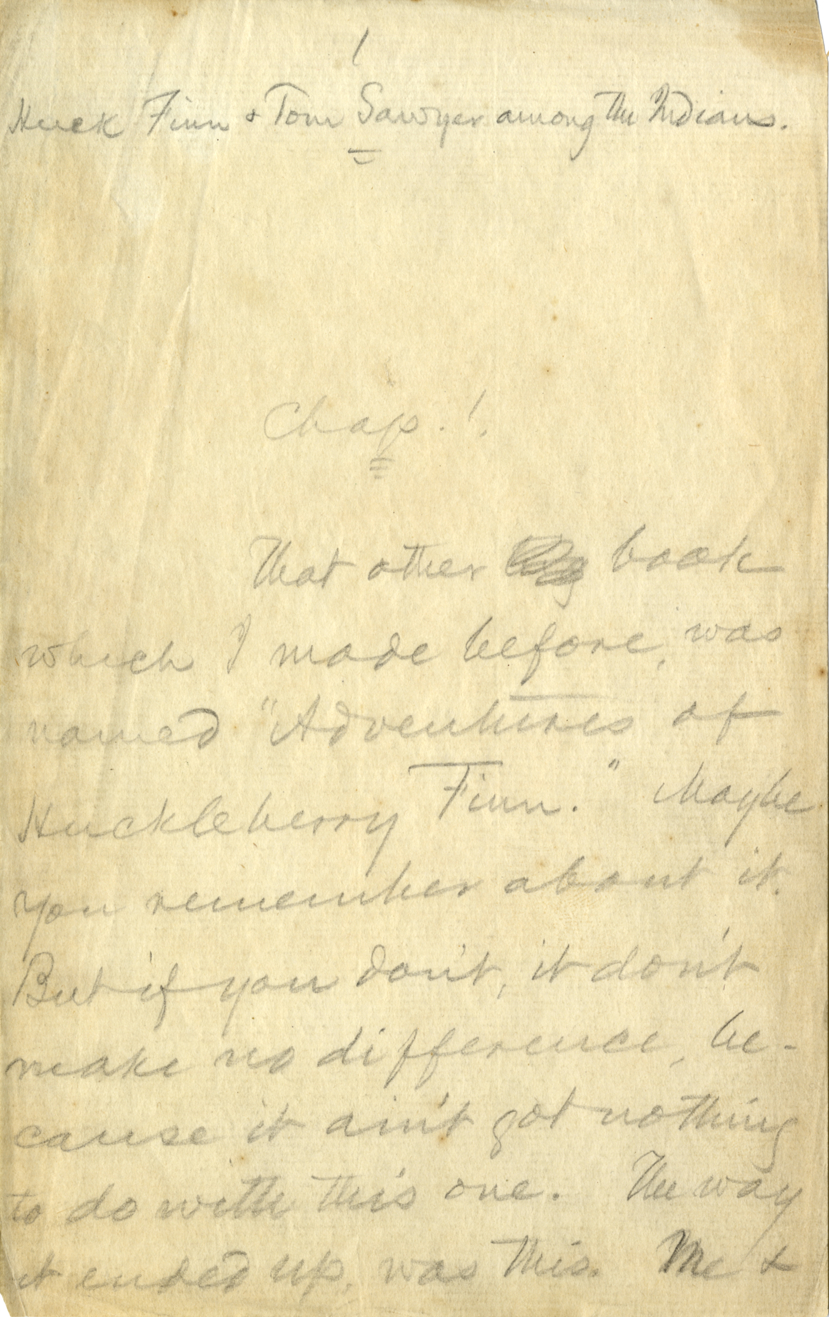 1
Huck Finn & Tom Sawyer among the Indians.
Chap. 1.
That other book
which I made before, was
named "Adventures of
Huckleberry Finn." Maybe
you remember about it.
But if you don't, it don't
make no difference, be-
cause it ain't got nothing
to do with this one. The way
it ended up, was this. Me &